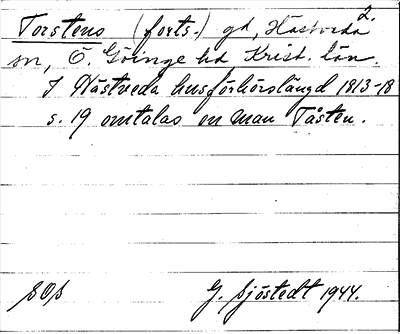 2.
Torstens (forts.) gd, Hästveda
sn, Ö. Göinge hd Krist. län.
I Hästveda husförhörslängd 1813-18
s. 19 omtalas en man Tåsten.
SOS G. Sjöstedt 1944.